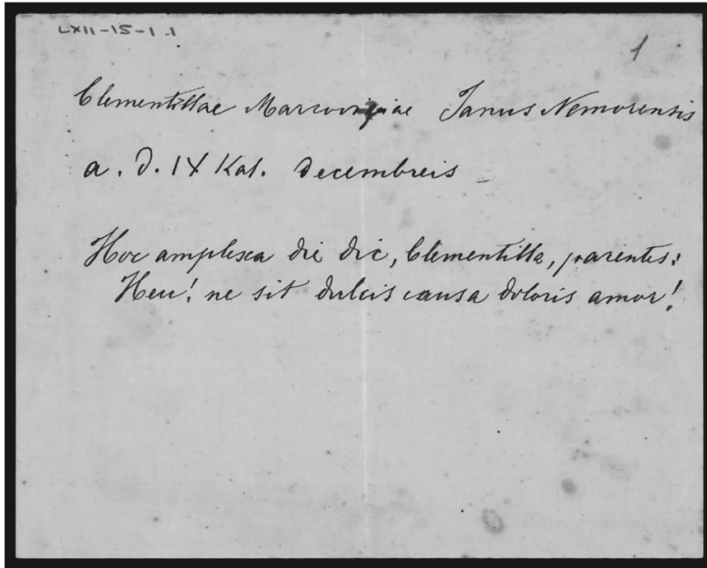 LXII-15-1.1
1
Clementillae Marcovigiae Janus Nemorensis
a. d. IX Kal. Decembreis
Hoc amplexa die dic, Clementilla, parentes:
Heu! ne sit dulcis causa doloris amor!